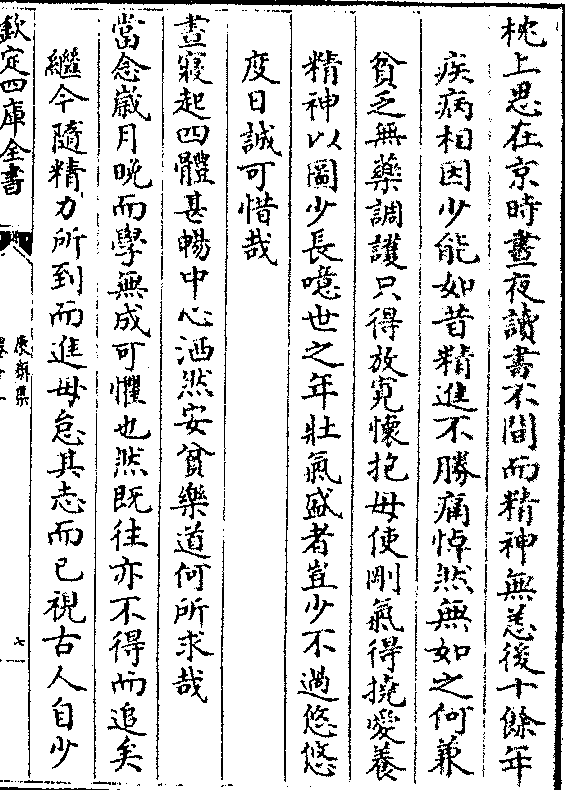 枕上思在京時晝夜讀書不間而精神無恙後十餘年
疾病相因少能如昔精進不勝痛悼然無如之何兼
貧乏無藥調護只得放寛懷抱毋使剛氣得撓愛養
精神以圖少長噫世之年壯氣盛者豈少不過悠悠
度日誠可惜哉
晝寢起四體甚暢中心洒然安貧樂道何所求哉
當念嵗月晚而學無成可懼也然既往亦不得而追矣
繼今隨精力所到而進毋怠其志而已視古人自少
欽定四庫全書
康齋集
七